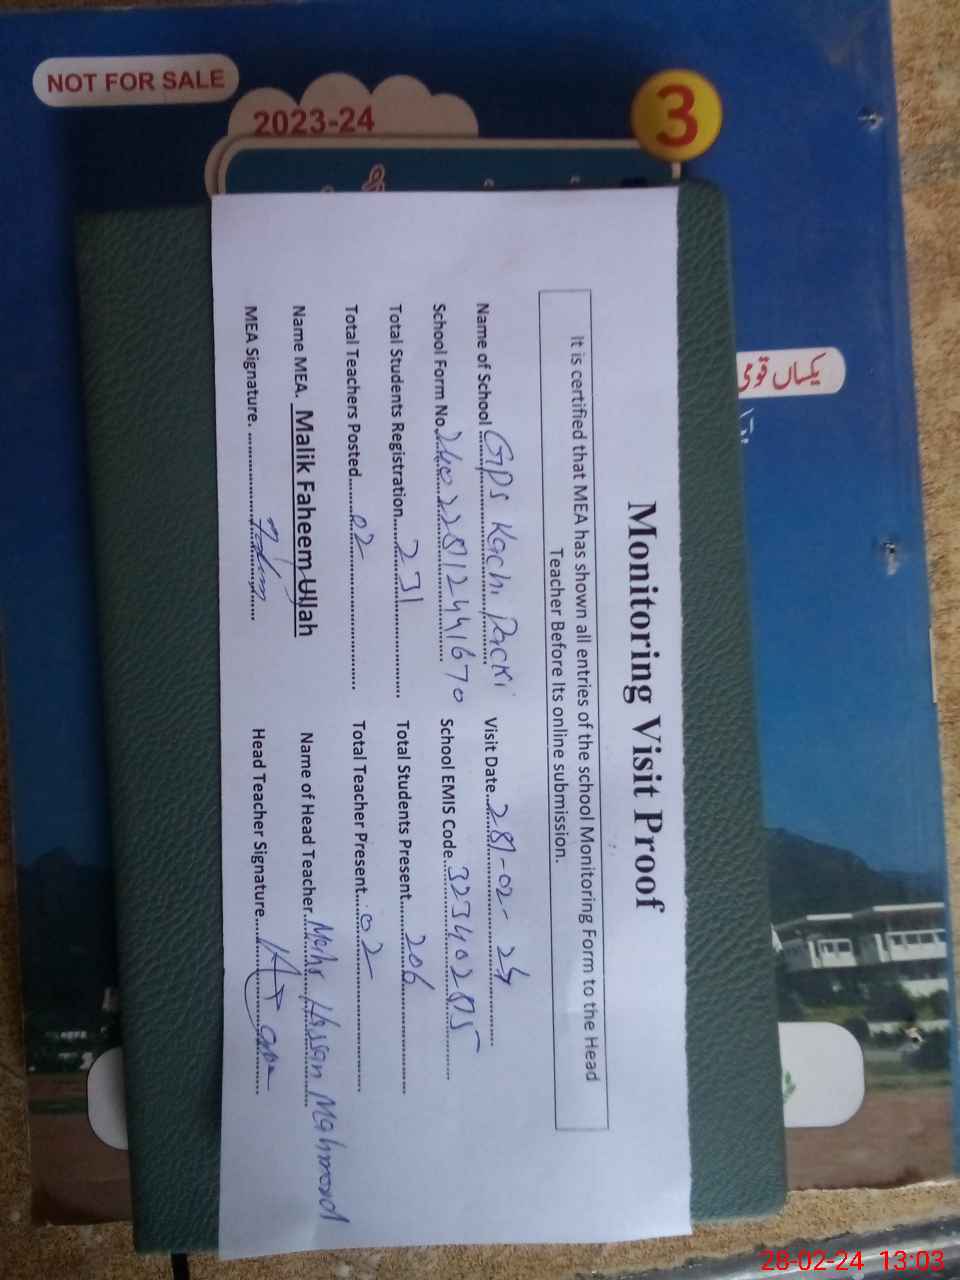 NOT FOR SALE
2023-24
3
یکساں قومی
Monitoring Visit Proof
It is certified that MEA has shown all entries of the school Monitoring Form to the Head
Teacher Before Its online submission.
Name of School GPS Kachi Packi Visit Date 28-02-24
School Form No. School EMIS Code. 32340285
Total Students Registration 231 Total Students Present 206
Total Teachers Posted 02 Total Teacher Present 02
Name MEA. Malik Faheem Ullah Name of Head Teacher Mahr Hassan Mahmood
MEA Signature. Head Teacher Signature
28-02-24 13:03